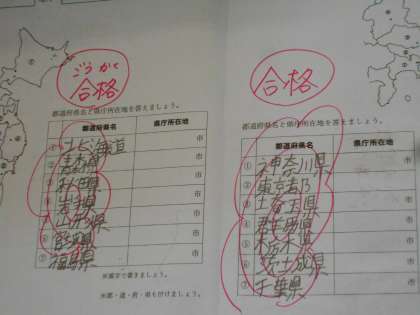 ごうかく
合格
都道府県名と県庁所在地を答えましょう。
都道府県名 県庁所在地
① 北海道 市
② 青森県 市
③ 秋田県 市
④ 岩手県 市
⑤ 山形県 市
⑥ 宮城県 市
⑦ 福島県 市
※漢字で書きましょう。
※都・道・府・県も付けましょう。
合格
都道府県名と県庁所在地を答えましょう。
都道府県名 県庁所在地
① 神奈川県 市
② 東京都 市
③ 埼玉県 市
④ 群馬県 市
⑤ 栃木県 市
⑥ 茨城県 市
⑦ 千葉県 市